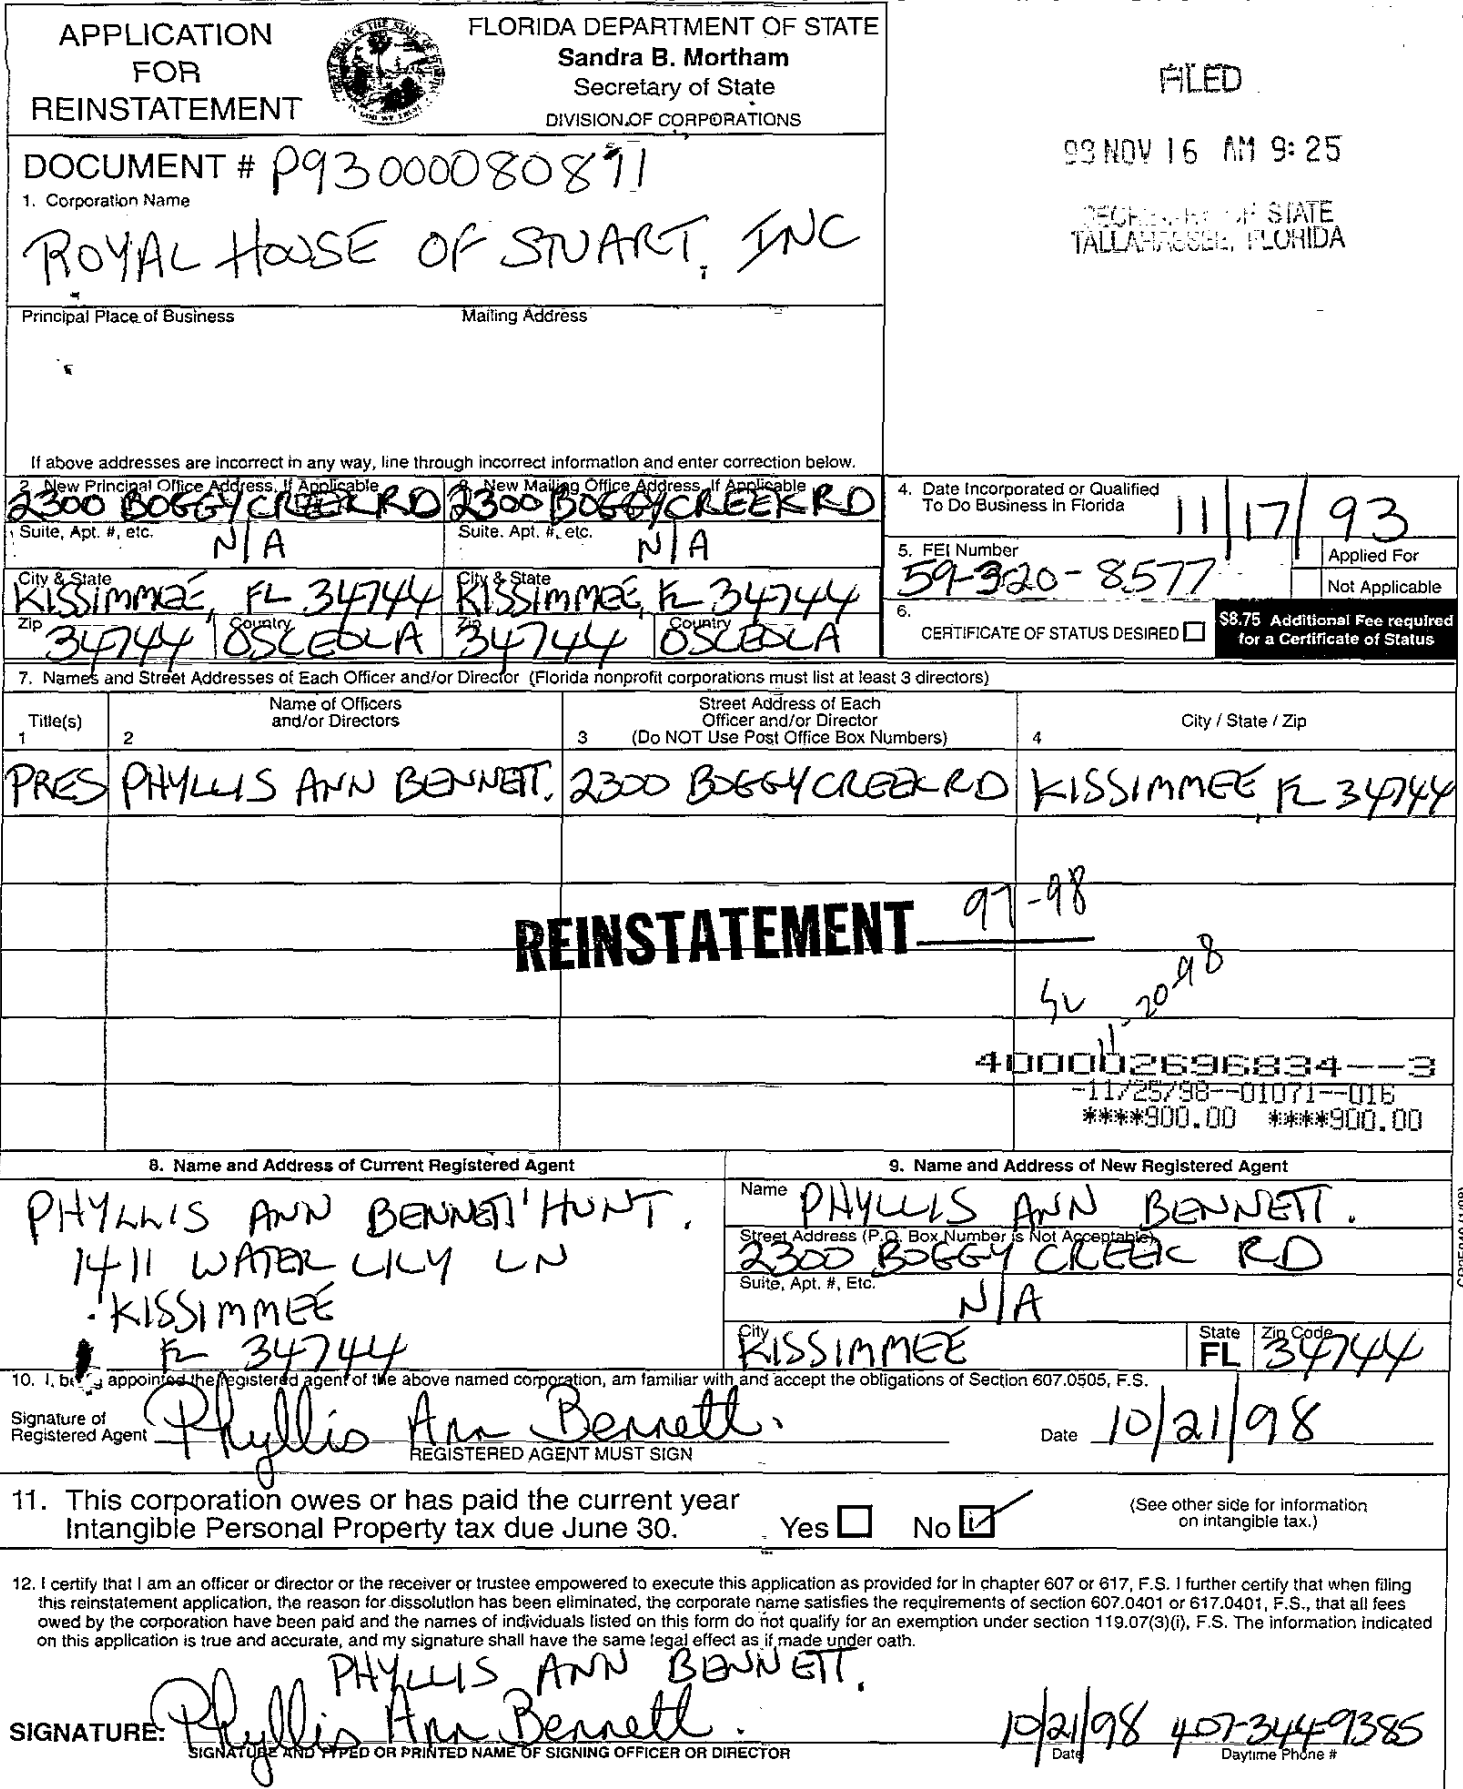 APPLICATION
FOR
REINSTATEMENT
FLORIDA DEPARTMENT OF STATE
Sandra B. Mortham
Secretary of State
DIVISION OF CORPORATIONS
FILED
98 NOV 16 AM 9:25
SECRETARY OF STATE
TALLAHASSEE, FLORIDA
DOCUMENT # P93000080891
1. Corporation Name
ROYAL HOUSE OF STUART, INC
Principal Place of Business
Mailing Address
If above addresses are incorrect in any way, line through incorrect information and enter correction below.
2. New Principal Office Address, If Applicable
2300 BOGGY CREEK RD
Suite, Apt. #, etc.
N/A
City & State
KISSIMMEE, FL 34744
Zip 34744 Country OSCEOLA
3. New Mailing Office Address, If Applicable
2300 BOGGY CREEK RD
Suite. Apt. #, etc.
N/A
City & State
KISSIMMEE, FL 34744
Zip 34744 Country OSCEOLA
4. Date Incorporated or Qualified
To Do Business in Florida 11/17/93
5. FEI Number
59-320-8577
Applied For
Not Applicable
6.
CERTIFICATE OF STATUS DESIRED
$8.75 Additional Fee required
for a Certificate of Status
7. Names and Street Addresses of Each Officer and/or Director (Florida nonprofit corporations must list at least 3 directors)
Title(s)
1
Name of Officers
and/or Directors
2
Street Address of Each
Officer and/or Director
3 (Do NOT Use Post Office Box Numbers)
City / State / Zip
4
PRES PHYLLIS ANN BENNETT. 2300 BOGGY CREEK RD KISSIMMEE, FL 34744
REINSTATEMENT 97-98
11-20-98
400002696834--3
-11/25/98--01071--016
****900.00 ****900.00
8. Name and Address of Current Registered Agent
PHYLLIS ANN BENNETT HUNT.
1411 WATER LILY LN
KISSIMMEE
FL 34744
9. Name and Address of New Registered Agent
Name PHYLLIS ANN BENNETT.
Street Address (P.O. Box Number is Not Acceptable)
2300 BOGGY CREEK RD
Suite, Apt. #, Etc.
N/A
City KISSIMMEE
State FL
Zip Code 34744
10. I, being appointed the registered agent of the above named corporation, am familiar with and accept the obligations of Section 607.0505, F.S.
Signature of
Registered Agent Phyllis Ann Bennett.
REGISTERED AGENT MUST SIGN
Date 10/21/98
11. This corporation owes or has paid the current year
Intangible Personal Property tax due June 30.
Yes
No
(See other side for information
on intangible tax.)
12. I certify that I am an officer or director or the receiver or trustee empowered to execute this application as provided for in chapter 607 or 617, F.S. I further certify that when filing
this reinstatement application, the reason for dissolution has been eliminated, the corporate name satisfies the requirements of section 607.0401 or 617.0401, F.S., that all fees
owed by the corporation have been paid and the names of individuals listed on this form do not qualify for an exemption under section 119.07(3)(i), F.S. The information indicated
on this application is true and accurate, and my signature shall have the same legal effect as if made under oath.
PHYLLIS ANN BENNETT.
SIGNATURE: Phyllis Ann Bennett.
SIGNATURE AND TYPED OR PRINTED NAME OF SIGNING OFFICER OR DIRECTOR
10/21/98 407-344-9385
Date
Daytime Phone #